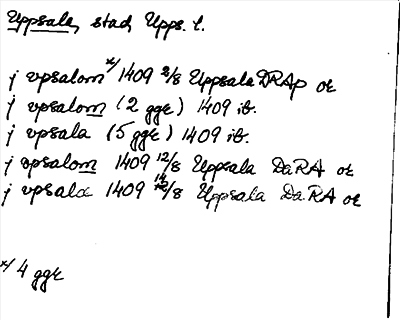 Uppsala, stad, Upps. l.
j vpsalom x/ 1409 2/8 Uppsala DRAp or
j vpsalom (2 ggr) 1409 ib.
j vpsala (5 ggr) 1409 ib.
j vpsalom 1409 12/8 Uppsala DaRA or
j vpsala 1409 14/8 Uppsala DaRA or
x/ 4 ggr